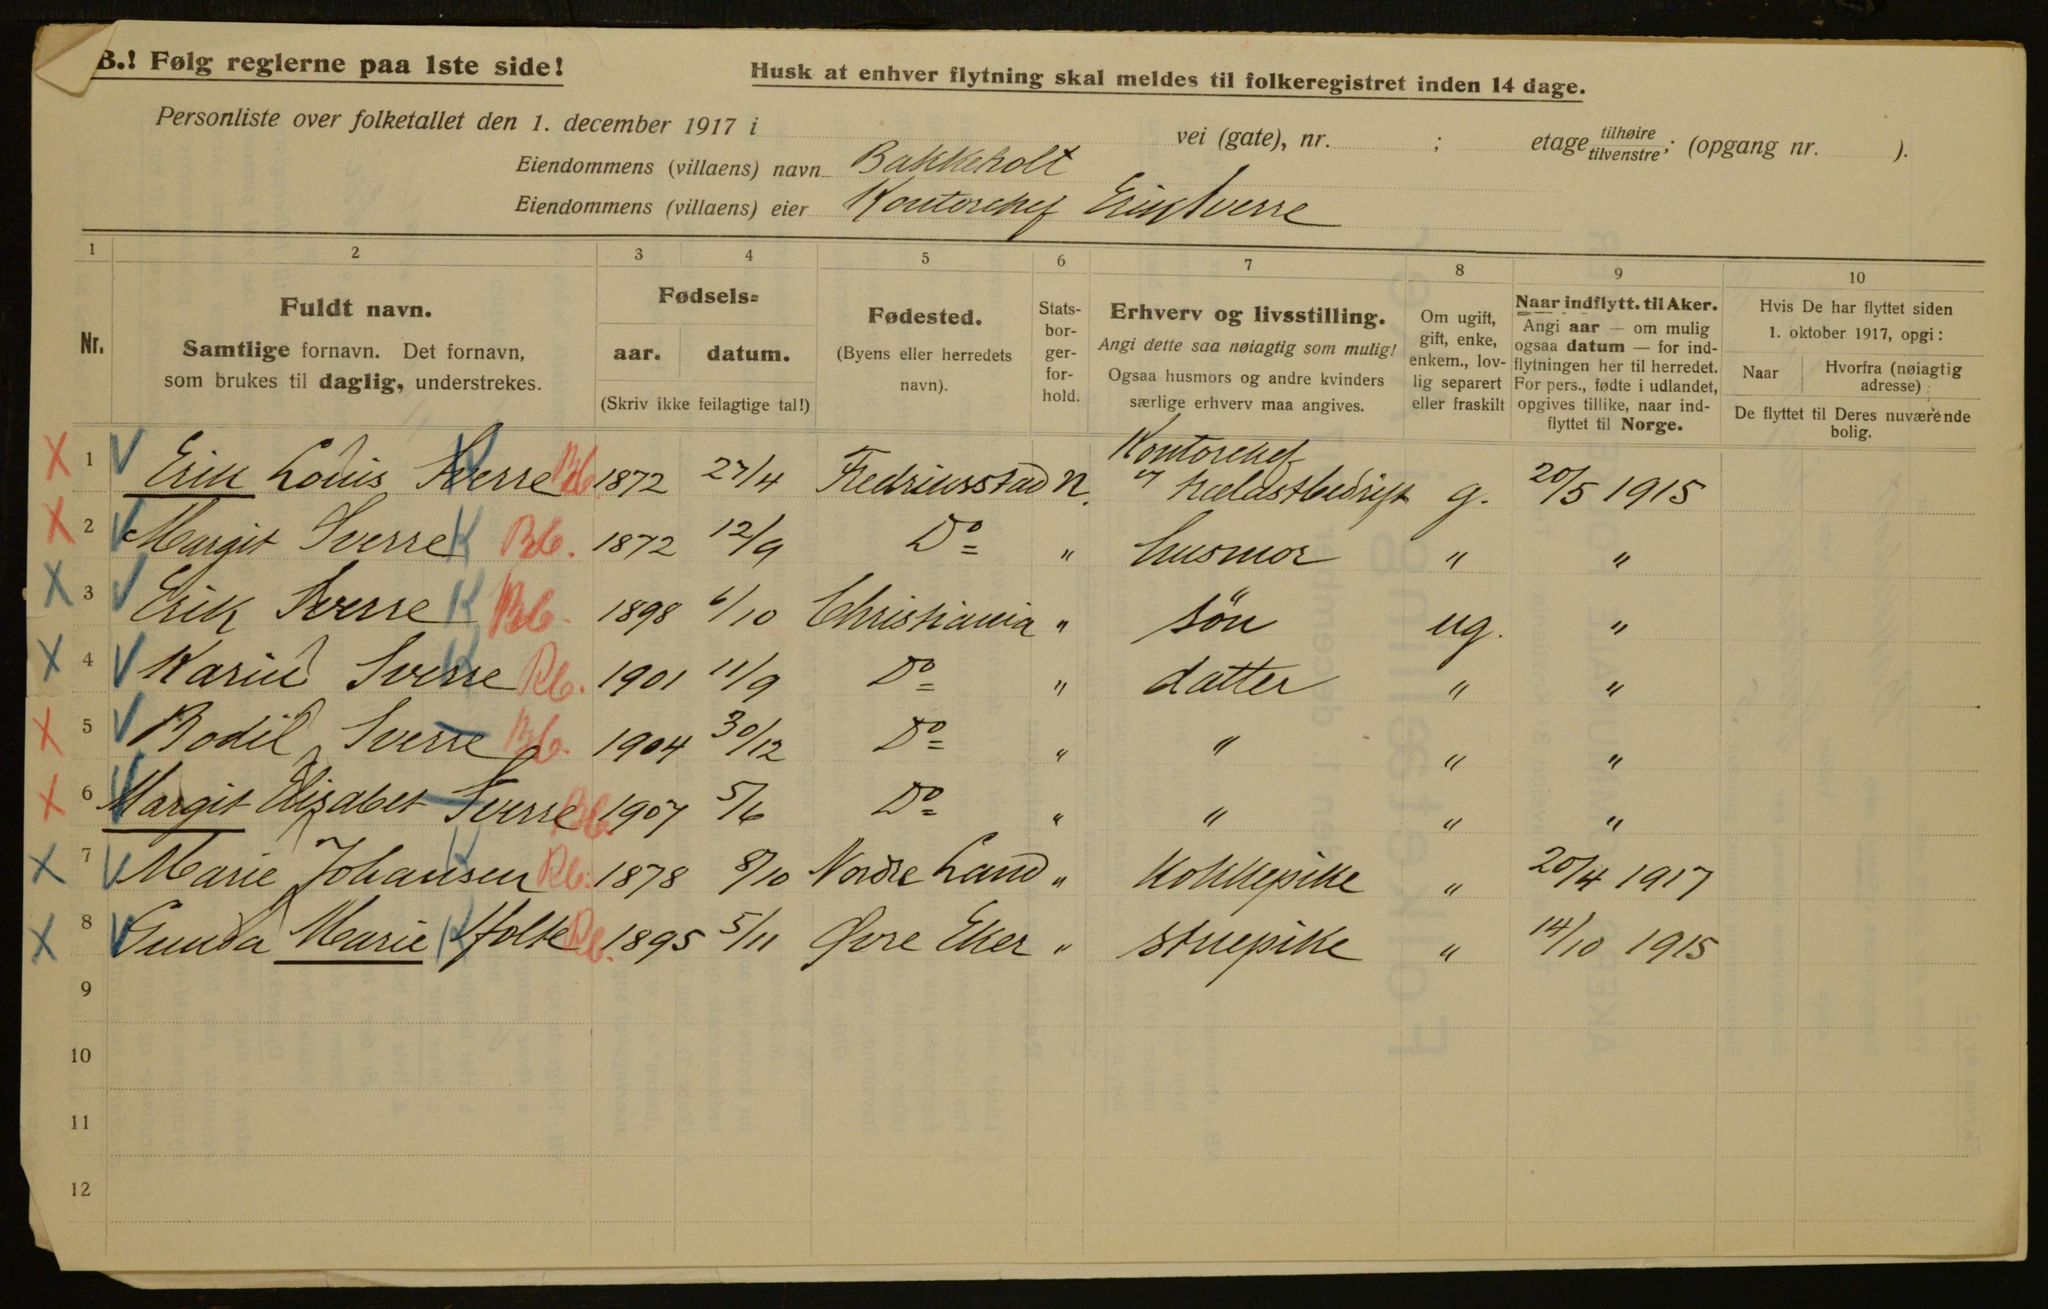 B.! Følg reglerne paa 1ste side!
Husk at enhver flytning skal meldes til folkeregistret inden 14 dage.
Personliste over folketallet den 1. december 1917 i vei (gate), nr. ; etage tilhøire tilvenstre ; (opgang nr. ).
Eiendommens (villaens) navn Bakkeholt
Eiendommens (villaens) eier Kontorchef Erik Sverre
1 2 3 4 5 6 7 8 9 10
Nr.
Fuldt navn.
Samtlige fornavn. Det fornavn,
som brukes til daglig, understrekes.
Fødsels=
aar. datum.
(Skriv ikke feilagtige tal!)
Fødested.
(Byens eller herredets
navn).
Stats-
bor-
ger-
for-
hold.
Erhverv og livsstilling.
Angi dette saa nøiagtig som mulig!
Ogsaa husmors og andre kvinders
særlige erhverv maa angives.
Om ugift,
gift, enke,
enkem., lov-
lig separert
eller fraskilt
Naar indflytt. til Aker.
Angi aar — om mulig
ogsaa datum — for ind-
flytningen her til herredet.
For pers., fødte i udlandet,
opgives tillike, naar ind-
flyttet til Norge.
Hvis De har flyttet siden
1. oktober 1917, opgi:
Naar Hvorfra (nøiagtig
adresse)
De flyttet til Deres nuværende
bolig.
Kontorchef
1 Erik Louis Sverre 1872 27/4 Fredriksstad N. Trælastbedrift g. 20/5 1915
2 Margit Sverre K 1872 12/9 Do " husmor " "
3 Erik Sverre K 1898 6/10 Christiania " søn ug. "
4 Karin Sverre K 1901 11/9 Do " datter " "
5 Bodil Sverre 1904 30/12 Do " " " "
6 Margit Elisabet Sverre 1907 5/6 Do " " " "
7 Marie Johansen K 1878 8/10 Nordre Land " Kokkepike " 20/4 1917
8 Gunda Marie Holte K 1895 5/11 Øvre Eker " stuepike " 14/10 1915
9
10
11
12